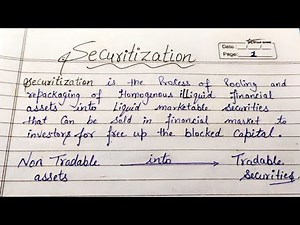 Securitization
Date: / /
Page: 1
Securitization is the Process of Pooling and
repackaging of Homogenous illiquid financial
assets into Liquid marketable securities
that Can be Sold in financial market to
investors for free up the blocked Capital.
Non Tradable into Tradable
assets Securities